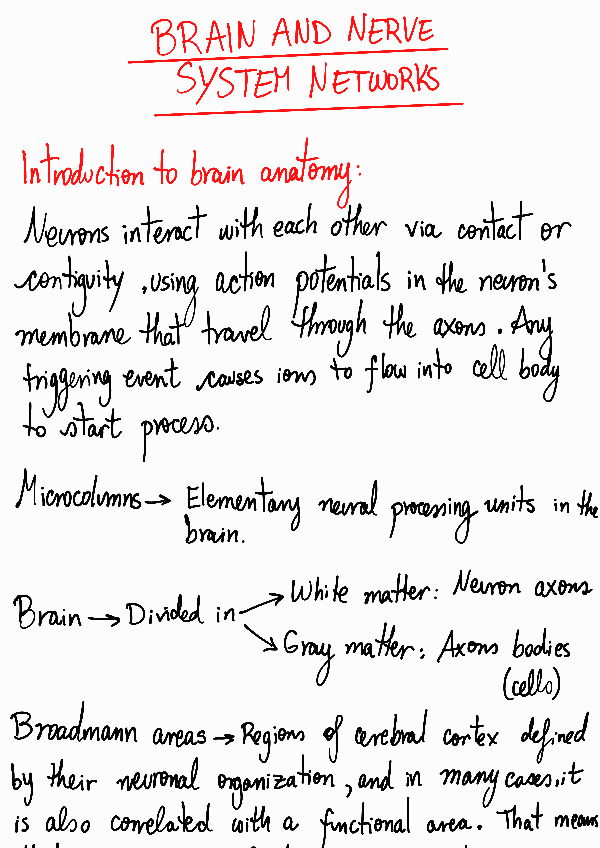 BRAIN AND NERVE
SYSTEM NETWORKS
Introduction to brain anatomy:
Neurons interact with each other via contact or
contiguity, using action potentials in the neuron's
membrane that travel through the axons. Any
triggering event causes ions to flow into cell body
to start process.
Microcolumns → Elementary neural processing units in the
brain.
White matter: Neuron axons
Brain → Divided in
Gray matter: Axons bodies
(cells)
Broadmann areas → Regions of cerebral cortex defined
by their neuronal organization, and in many cases, it
is also correlated with a functional area. That means